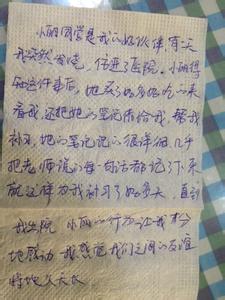 小丽同学是我的好伙伴,有天
我突然发烧,住进了医院。小丽得
知这件事后,她买了好多好吃的来
看我,还把她的笔记带给我,帮我
补习,她的笔记记的很详细,几乎
把老师说的每一句话都记了下来
就这样为我补习了好多天,直到
我出院,小丽的行为让我十分
地感动,我想愿我们之间的友谊
地久天长